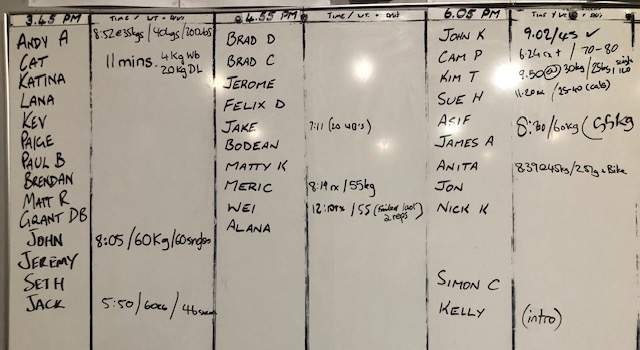 3.45 PM TIME / WT.
ANDY A 8:52
CAT 11 mins. 4Kg Wb
20kg DL
KATINA
LANA
KEV
PAIGE
PAUL B
BRENDAN
MATT R
GRANT DB
JOHN 8:05/60Kg/60
JEREMY
SETH
JACK 5:50/60
4.55 PM TIME / WT.
BRAD D
BRAD C
JEROME
FELIX D
JAKE 7:11 (20
BODEAN
MATTY K
MERIC 8:19 rx /55kg
WEI 12: /55
2 reps
ALANA
6.05 PM TIME
JOHN K 9.02/45 ✓
CAM P 6:24 / 70-80
KIM T 9.50 @ 30kg /25kg
SUE H 11.20 / 25-40 (cals)
ASIF 8:30/60kg (55kg
JAMES A
ANITA 839@45kg/25kg + Bike
JON
NICK K
SIMON C
KELLY (intro)